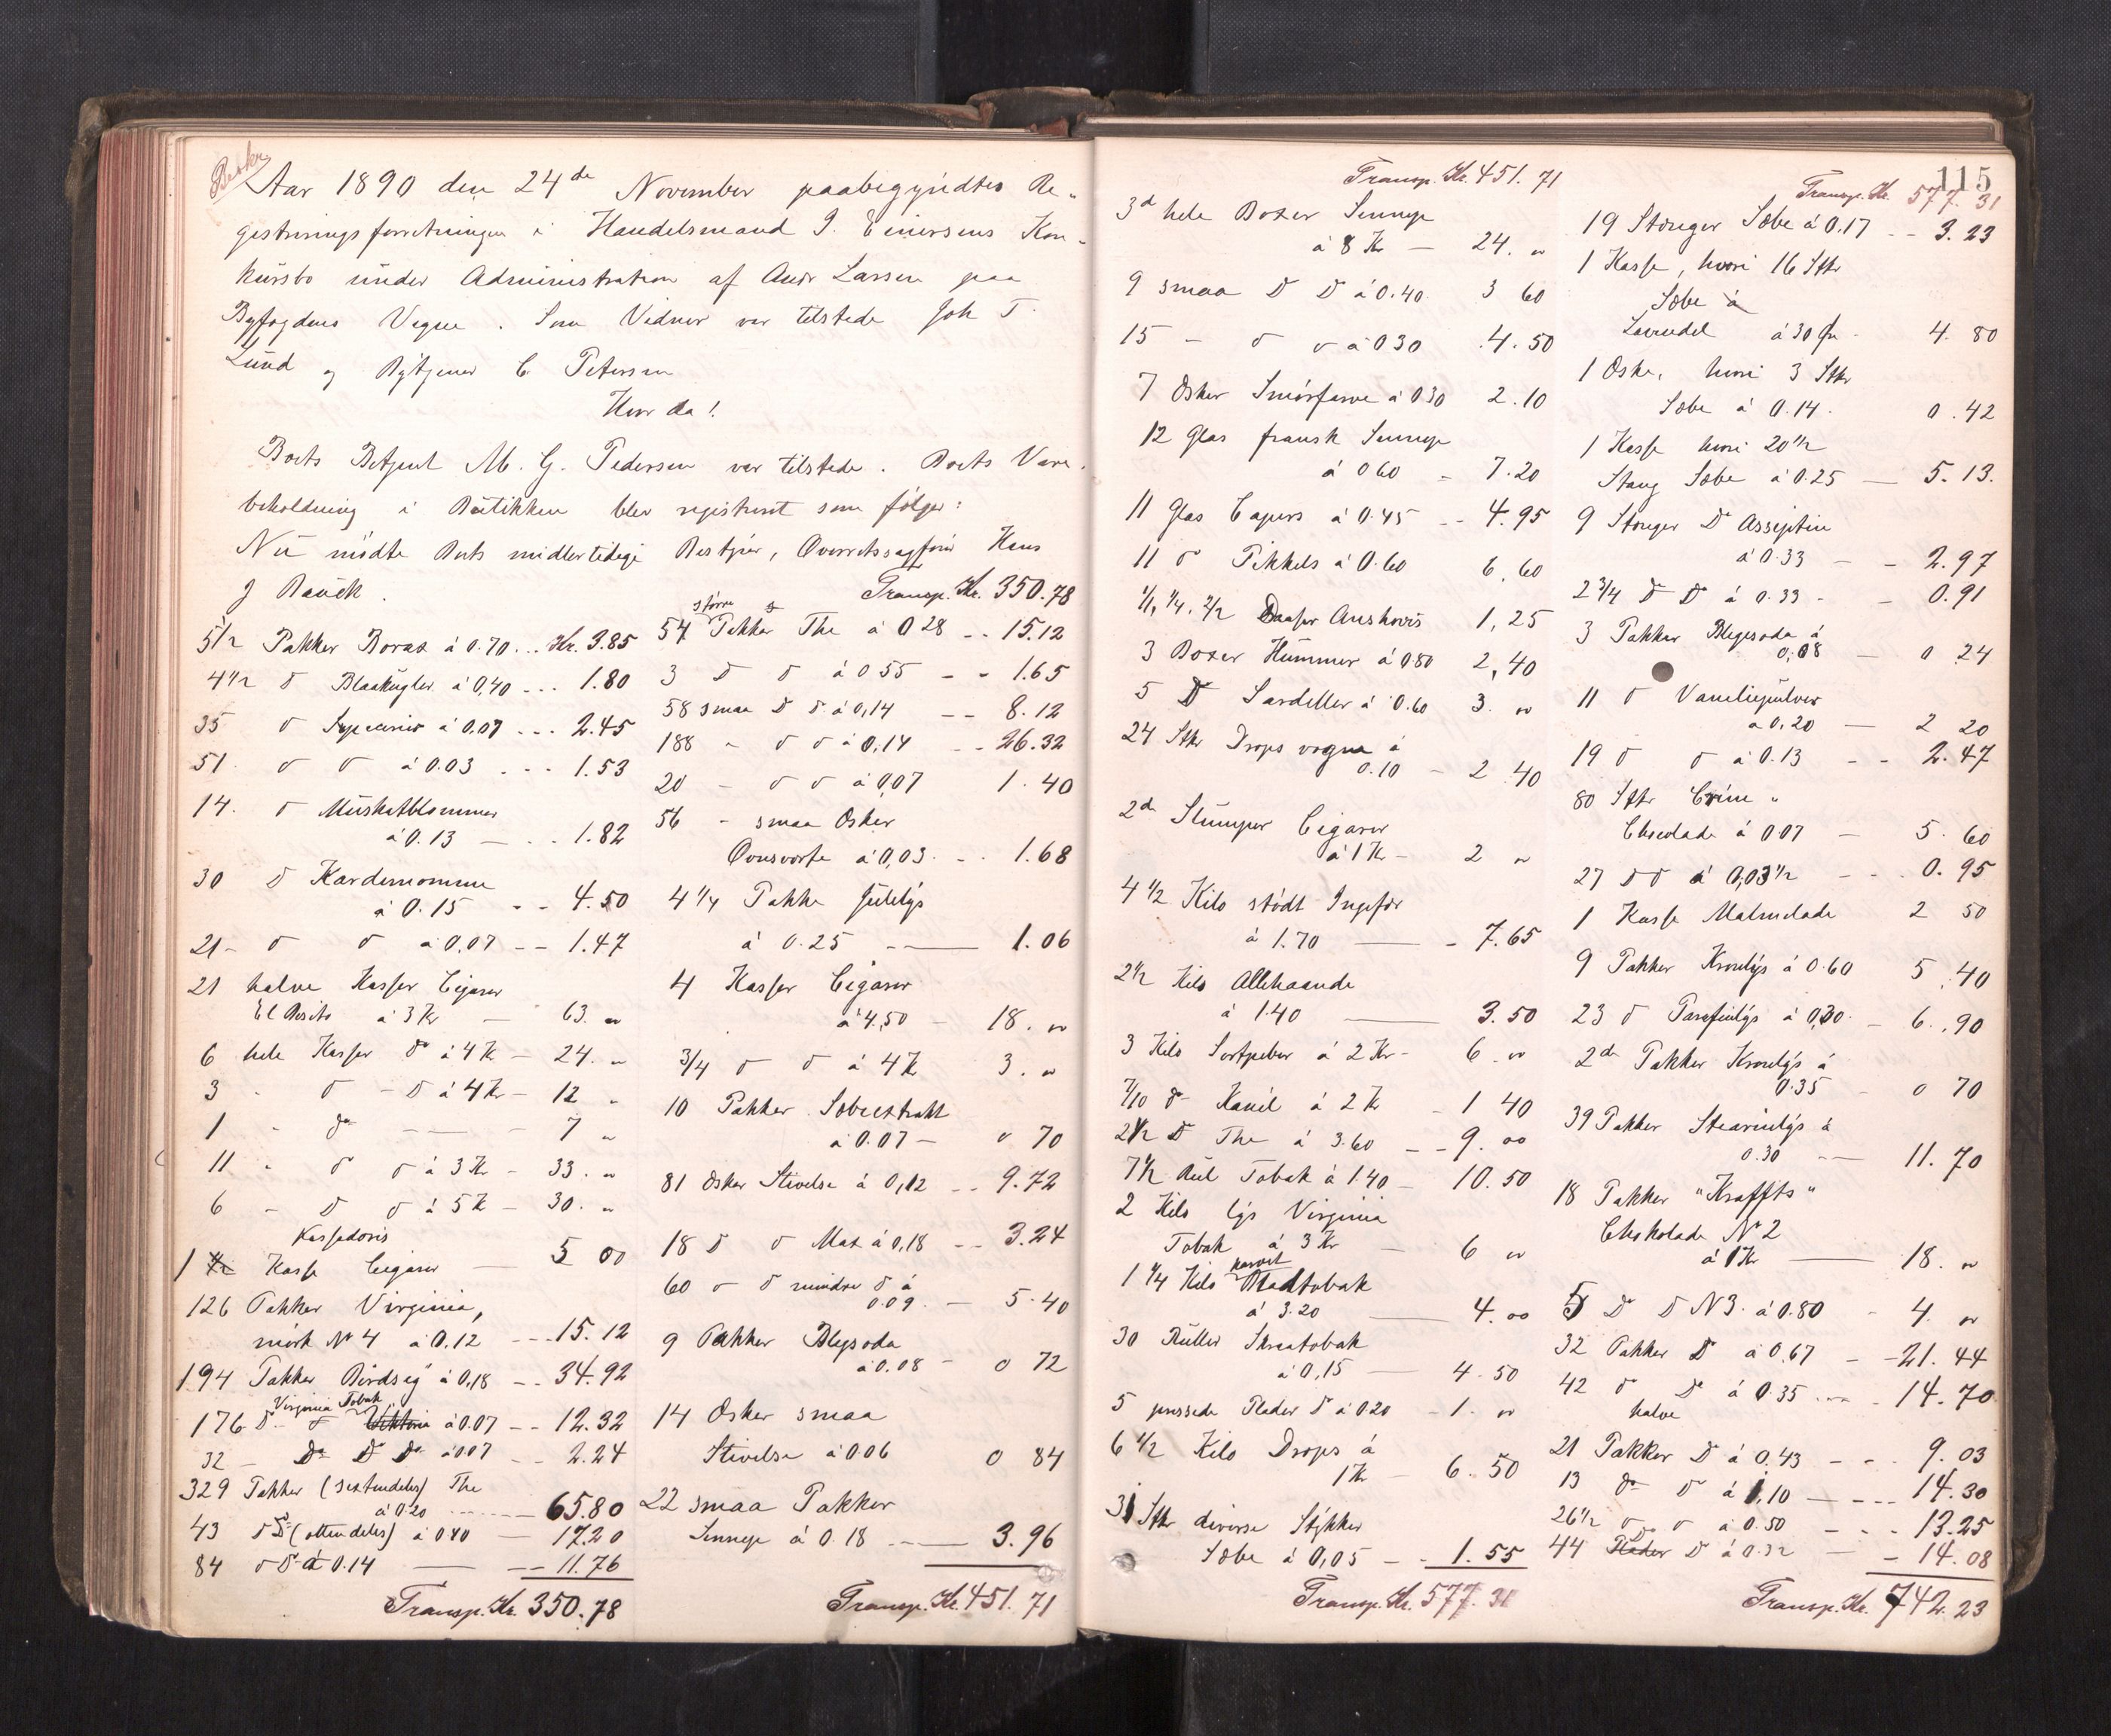 Beskr
Aar 1890 den 24de November paabegyndtes Re-
gistreringsforretningen i Handelsmand I. Einersens Kon-
kursbo under Administration af Andr Larsen paa
Byfogdens Vegne. Som Vidner var tilstede Joh T.
Lund og Bytjener C Petersen
Hvor da!
Boets Betjent M. G. Pedersen var tilstede. Boets Vare-
beholdning i Butikken blev registreret som følger:
Nu mødte Boets midlertidige Bestyrer, Overretssagfører Hans
J Bauck.
5 1/2 Pakker Borax á 0.70 ... Kr. 3.85
4 1/2 D Blaakugler á 0,40 --- 1.80
35 D á 0.07 --- 2.45
51 D D á 0.03 --- 1.53
14. D Muskatblommer
á 0.13 --- 1.82
30 D Kardemomme
á 0.15 -- 4.50
21 - D D á 0.07 -- 1.47
21 halve Kasser Cigarer
El Resito á 3 Kr — 63. "
6 hele Kasser Do á 4 K — 24. "
3 - D - D á 4 Kr — 12 "
1 " Do — - 7 "
11 - D D á 3 Kr - 33. "
6 - D D á 5 K - 30. "
Kassadoris
1 Kasse Cigarer — 5 00
126 Pakker Virginia,
mørk No 4 á 0.12 --- 15.12
194 Pakker Birdseÿ á 0,18 -- 34.92
Virginia Tobak
176 D - D Viktoria á 0.07 -- 12.32
32 - Do D Do á 0.07 -- 2.24
329 Pakker (sextendeles) The
á 0.20 ------ 65.80
43 D D (ottendeles) á 0.40 — 17.20
84 D D á 0.14 — -- 11.76
Transp. Kr. 350.78
Transp. Kr. 350.78
større
54 Pakker The á 0 28 -- 15.12
3 D D á 0 55 -- 1.65
58 smaa D D á 0,14 -- 8.12
188 - D D á 0,14 -- 26.32
20 - D D á 0,07 1.40
56 - smaa Esker
Ovnsværte á 0,03 -- 1.68
4 1/4 Pakke Julelys
á 0.25 --— 1.06
4 Kasser Cigarer
á 4,50 - 18. "
3/4 D D á 4 K 3. "
10 Pakker Sæbeextrakt
á 0.07 — 0 70
81 Esker Stivelse á 0,12 -- 9.72
18 D D Max á 0,18 -- 3.24
60 D D mindre D á
0.09. — 5.40
9 Pakker Blegsoda
á 0.08 - 0 72
14 Esker smaa
Stivelse á 0 06 0 84
22 smaa Pakker
Sennep á 0.18 --— 3.96
Transp. Kr. 451.71
Transp. Kr. 451.71
3d hele Boxer Sennep
á 8 Kr — 24. "
9 smaa D D á 0.40. 3 60
15 - D D á 0 30 4.50
7 Esker Smørfarve á 0 30 2.10
12 Glas fransk Sennep
á 0 60 - 7.20
11 Glas Capers á 0.45 -- 4.95
11 D Pikkels á 0.60 6.60
1/1, 1/4, 2/2 Daaser Anshovis 1,25
3 Boxer Hummer á 0.80 2,40
5 D Sardeller á 0.60 3. "
24 Stkr Drops vogne á
0.10 - 2 40
2de Stumper Cigarer
á 1 K — 2 "
4 1/2 Kilo stødt Ingefær
á 1.70 — - 7.65
2 1/2 Kilo Allehaande
á 1.40 — 3.50
3 Kilo Sortpeber á 2 Kr - 6. "
7/10 D Kanel á 2 K - 1 40
2 1/2 D The á 3.60 -- 9. 00
7 1/2 Rul Tobak á 1.40 - 10.50
2 Kilo lys Virginia
Tobak á 3 Kr - 6 "
karvet
1 1/4 Kilo Bladtobak
á 3.20 — 4. 00
30 Ruller Skraatobak
á 0,15 — 4.50
5 pressede Plader D á 0.20 - 1. "
6 1/2 Kilo Drops á
1 K - 6.50
31 Stkr diverse Stykker
Sæbe á 0,05 -- 1.55
Transp. Kr. 577. 31
115
Transp. Kr. 577. 31
19 Stænger Sæbe á 0.17 -- 3.23
1 Kasse, hvori 16 Stkr
Sæbe á
Lavendel á 30 Øre - 4. 80
1 Eske, hvori 3 Stkr
Sæbe á 0.14. 0.42
1 Kasse hvori 20 1/2
Stang Sæbe á 0.25 — 5.13.
9 Stænger Do Asseptin
á 0.33 — - 2.97
2 3/4 D D á 0.33 - - 0.91
3 Pakker Blegesoda á
0,08 — 0 24
11 D Vaneliepulver
á 0.20 — 2 20
19 D D á 0.13 -- 2.47
80 Stkr Crême "
Chocolade á 0.07 — 5. 60
27 D D á 0,03 1/2 --- 0. 95
1 Kasse Malmelade 2 50
9 Pakker Kronlys á 0.60 5.40
23 D Parafinlys á 0,30. - 6.90
2de Pakker Kronlys á
0.35 - 0 70
39 Pakker Stearinlys á
0.30 -- 11. 70
18 Pakker "Kraffts"
Chokolade No 2
á 1 Kr — 18. "
5 Do D N 3. á 0.80 - 4. "
32 Pakker D á 0.67 -- 21. 44
42 D Do á 0.35 --- 14.70
halve
21 Pakker D á 0.43 --- 9. 03
13 Do D á 1,10 --- 14.30
26 1/2 D D á 0.50 --- 13.25
44 Plader Do D á 0.32 — - 14.08
Transp. Kr. 742.23